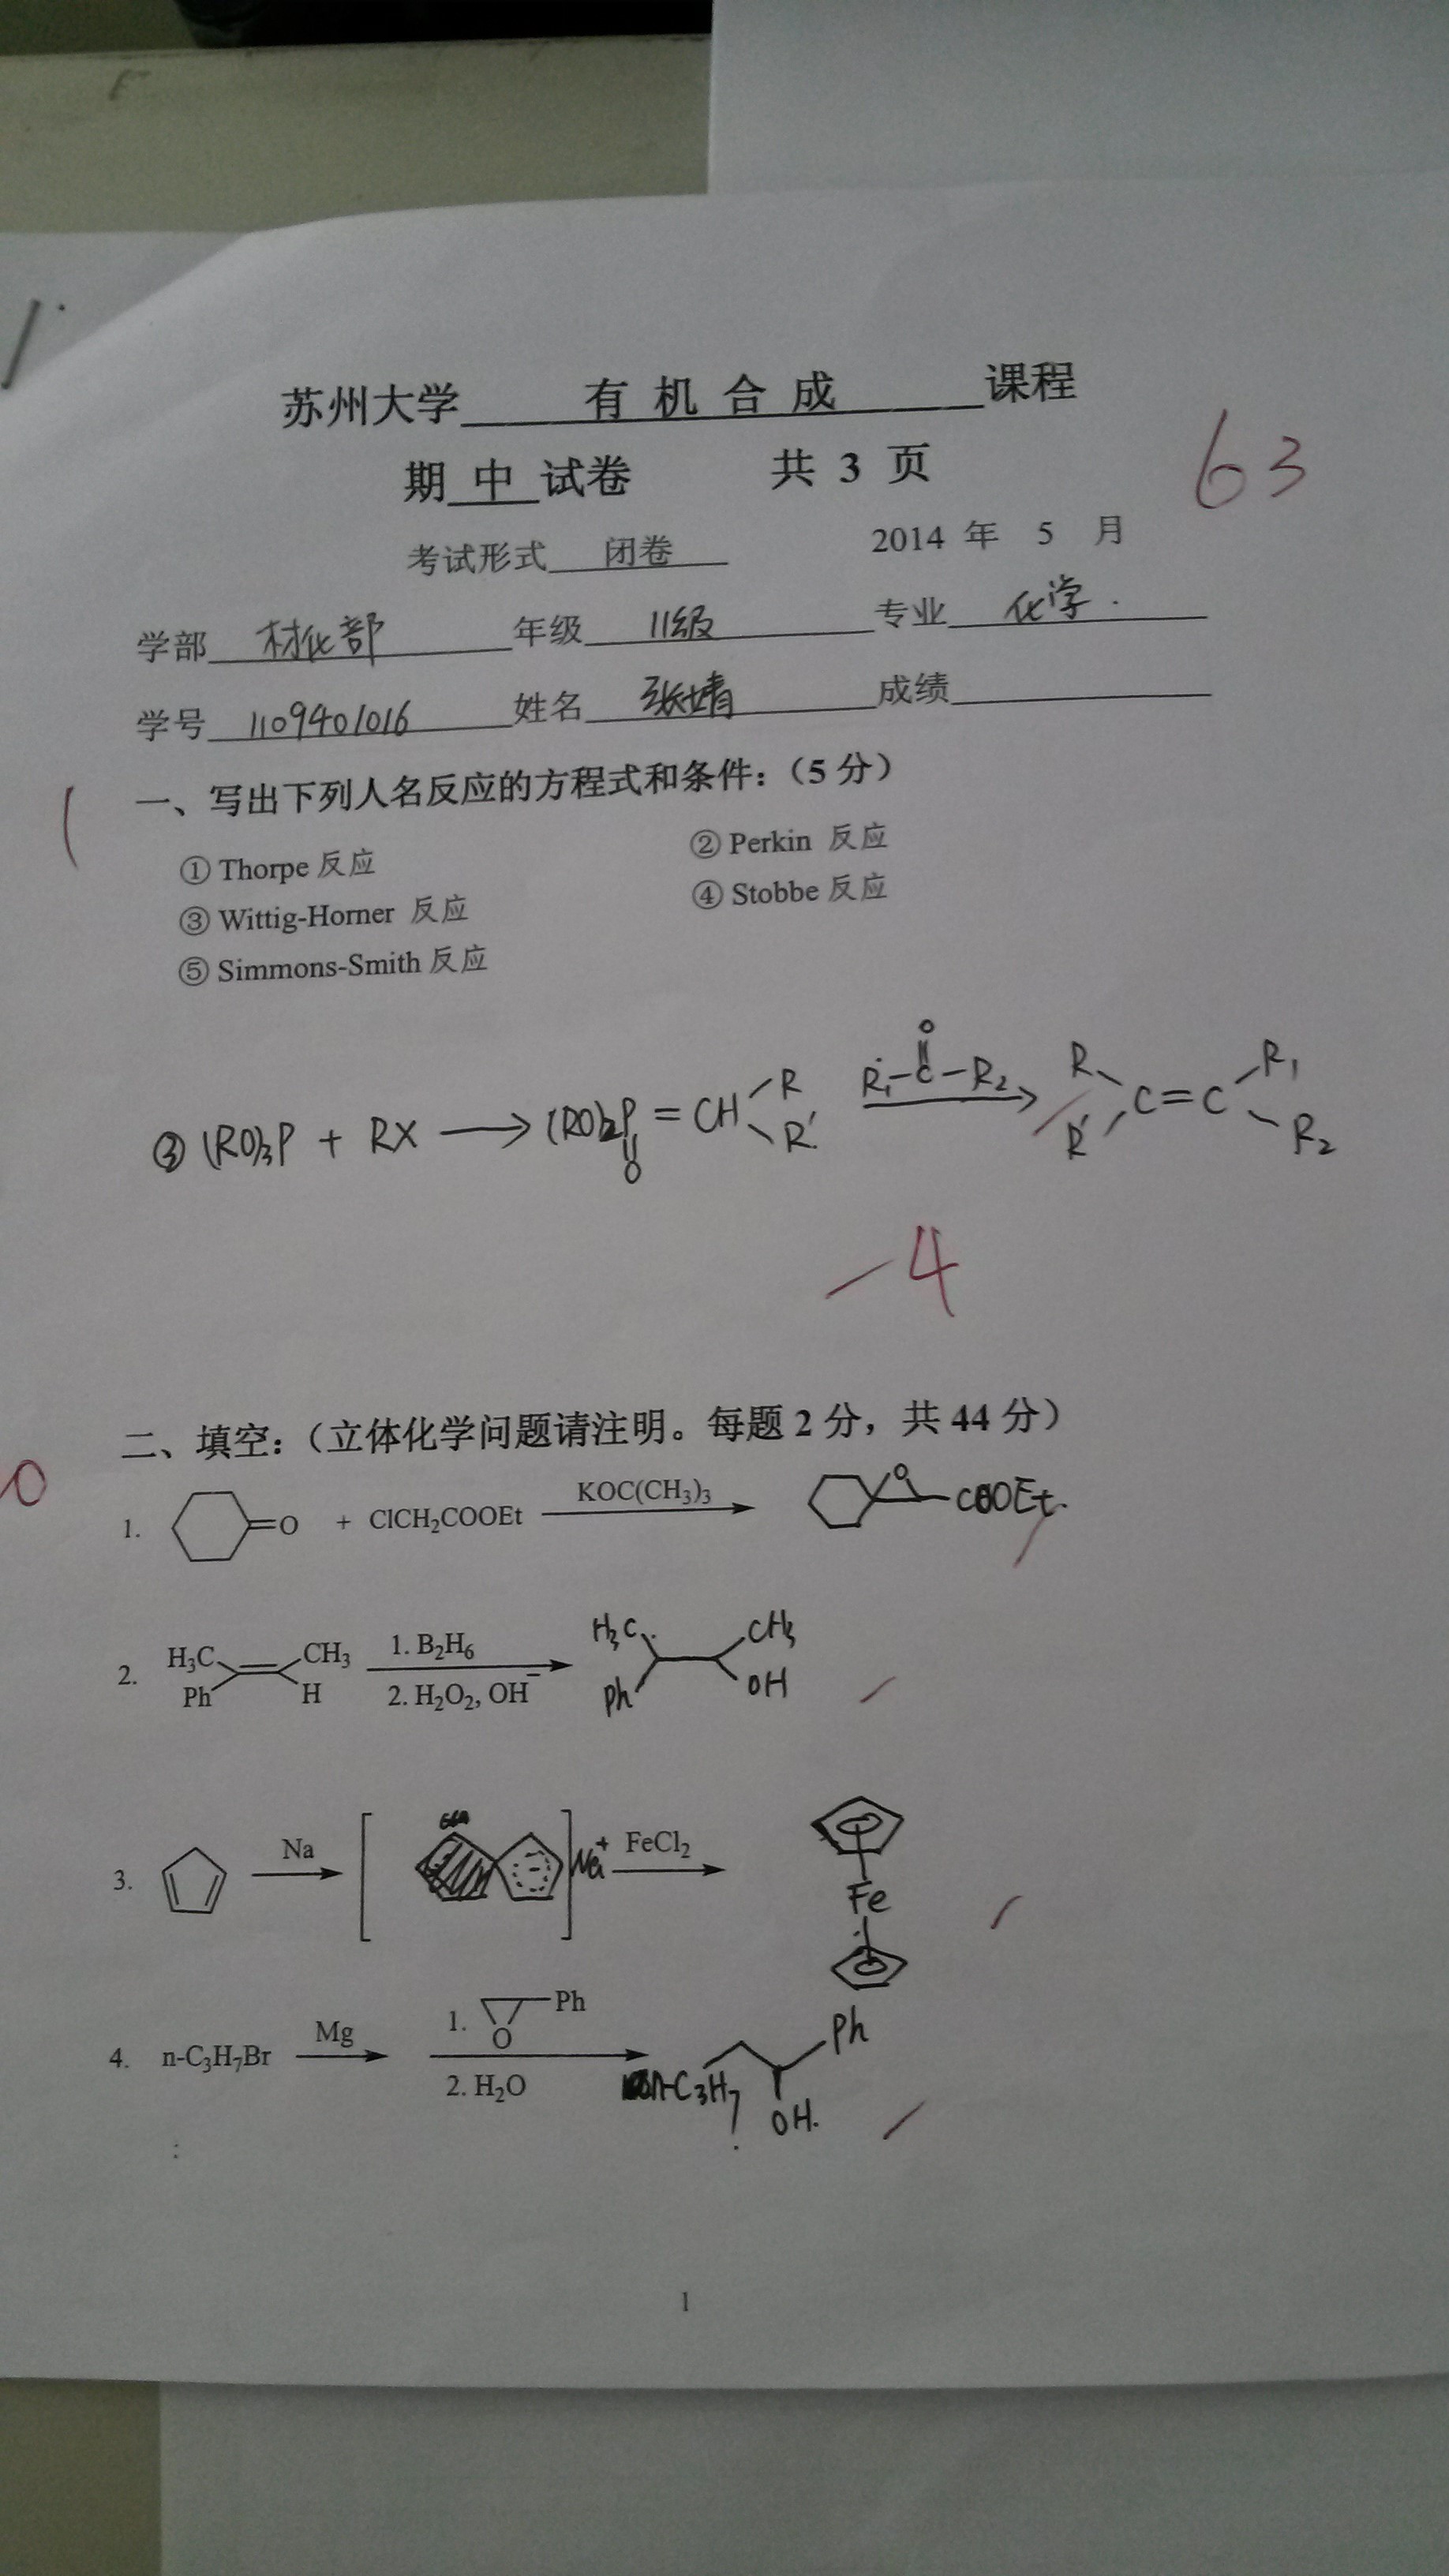 苏州大学 有 机 合 成 课程
期 中 试卷 共 3 页
63
考试形式 闭卷 2014 年 5 月
学部 材化部 年级 11级 专业 化学.
学号 1109401016 姓名 张婧 成绩
一、写出下列人名反应的方程式和条件:(5 分)
① Thorpe 反应 ② Perkin 反应
③ Wittig-Horner 反应 ④ Stobbe 反应
⑤ Simmons-Smith 反应
③ (RO)₃P + RX ⟶ (RO)₂P = CH R R' O R₁-C-R₂ O R R' C=C R₁ R₂
-4
二、填空:(立体化学问题请注明。每题 2 分,共 44 分)
1. =O + ClCH₂COOEt KOC(CH₃)₃ O COOEt.
2. H₃C Ph CH₃ H 1. B₂H₆ 2. H₂O₂, OH⁻ H₃C Ph CH₃ OH
3. Na [ - ] Na⁺ FeCl₂ Fe
4. n-C₃H₇Br Mg 1. O Ph 2. H₂O n-C₃H₇ Ph OH.
1